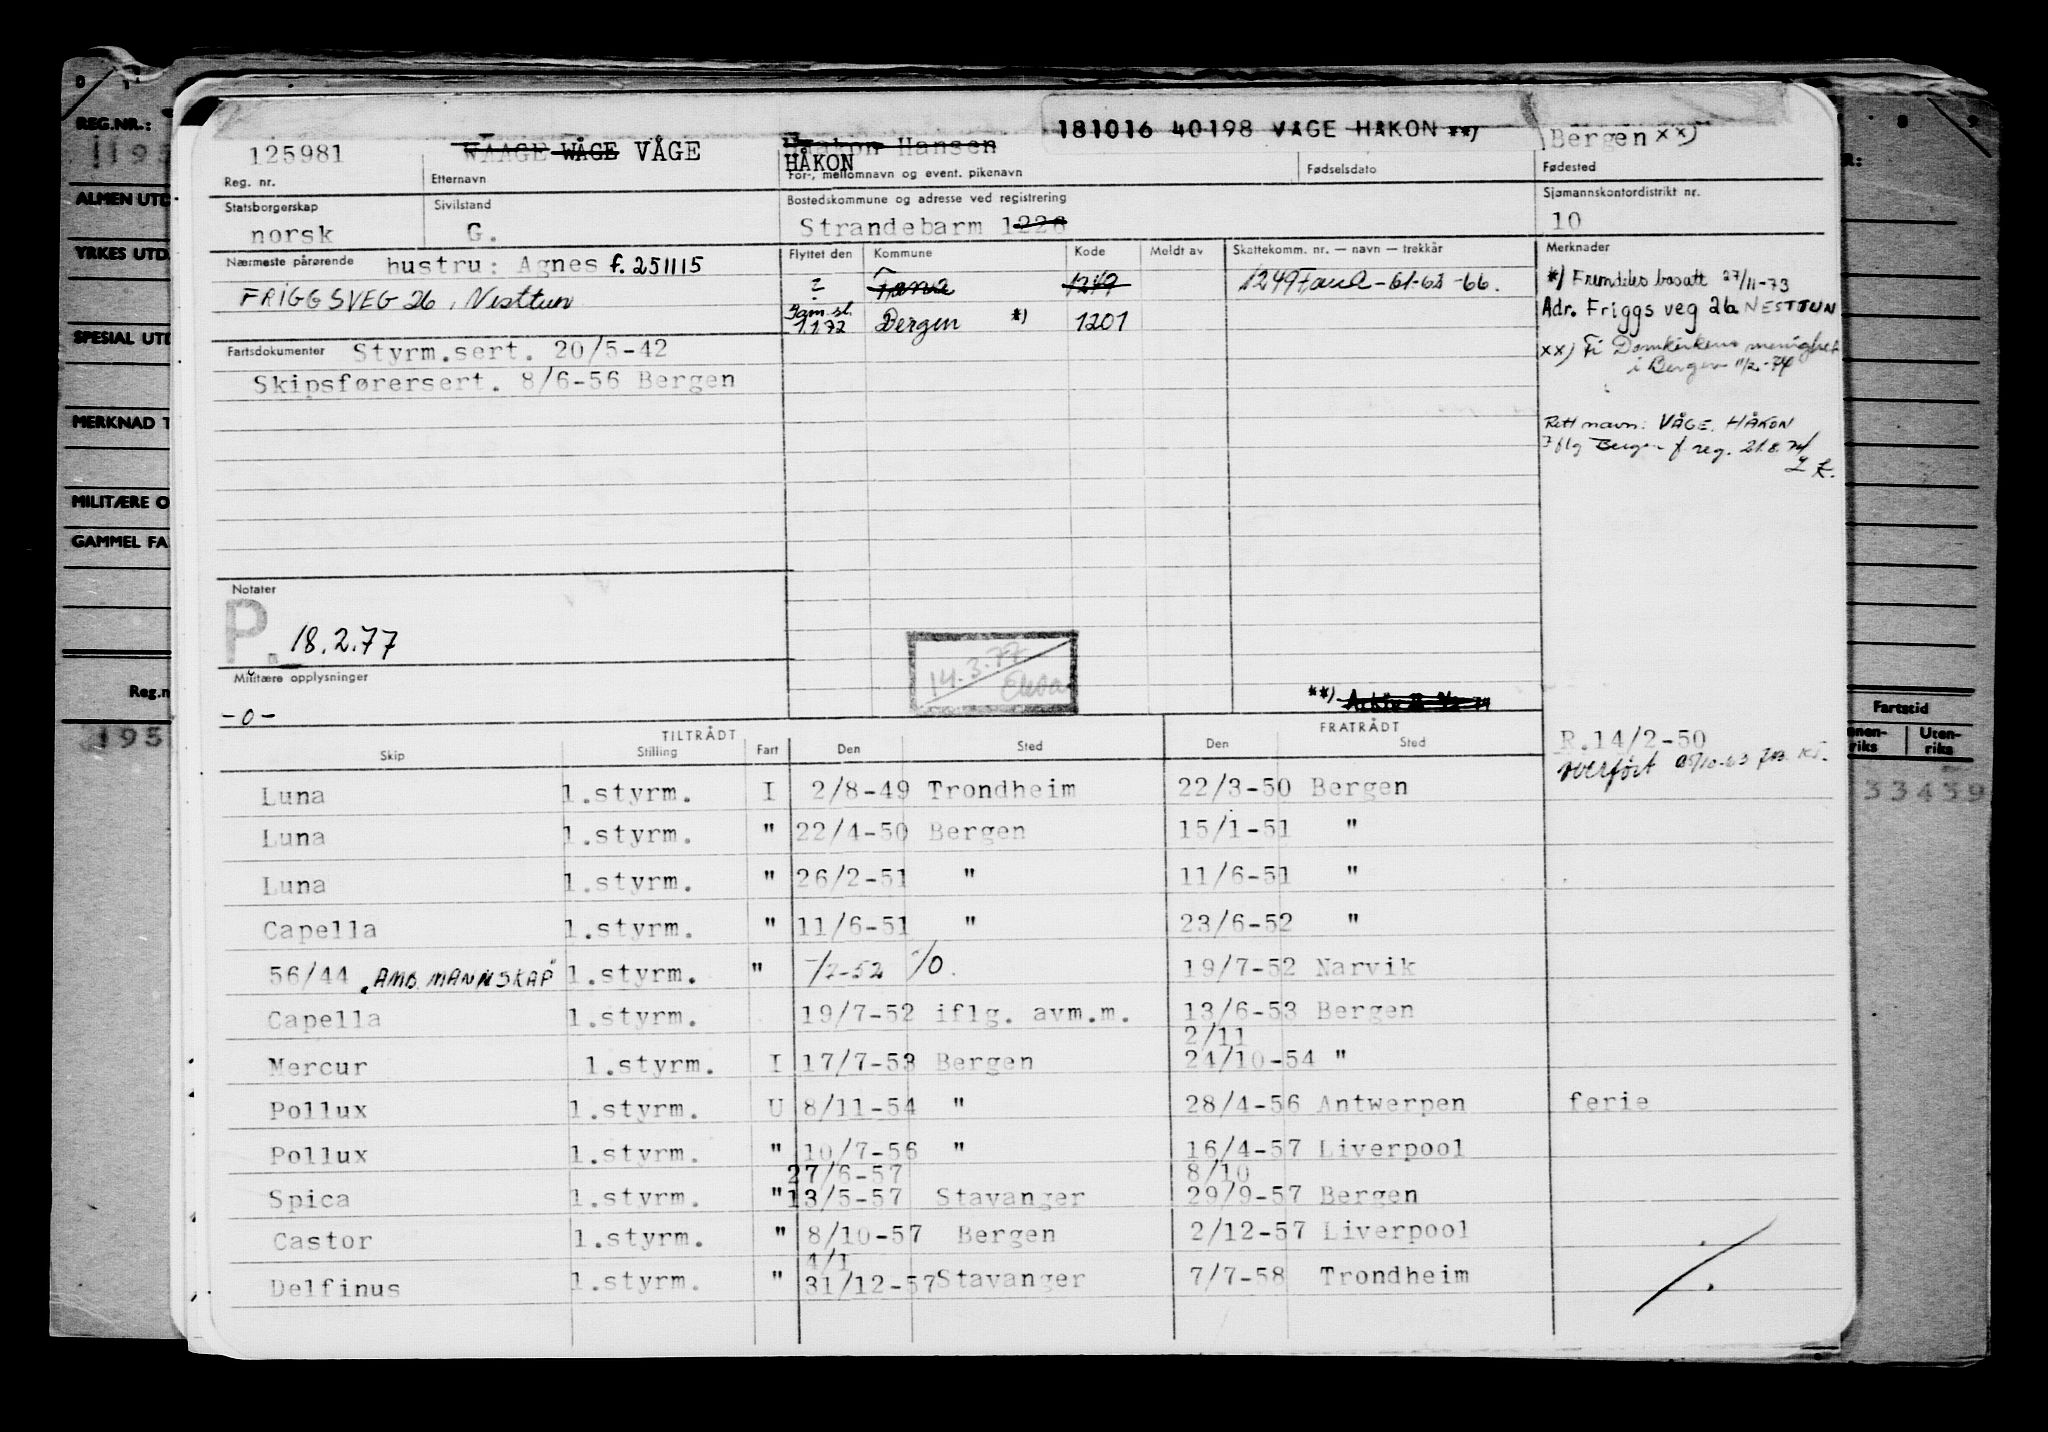 181016 40198 VÅGE HÅKON **)
125981 WAAGE WÅGE VÅGE Haakon Hansen Bergen xx)
HÅKON
Reg. nr. Etternavn For-, mellomnavn og event. pikenavn Fødselsdato Fødested
Statsborgerskap Sivilstand Bostedskommune og adresse ved registrering Sjømannskontordistrikt nr.
norsk G. Strandebarm 1226 10
Nærmeste pårørende hustru: Agnes f. 251115 Flyttet den Kommune Kode Meldt av Skattekomm. nr. — navn — trekkår Merknader
FRIGGSVEG 26, Nesttun ? Fana 1249 1249 Fana - 61-62 -66. *) Fremdeles bosatt 27/11-73
Sam.sl. 1172 Bergen *) 1201 Adr. Friggs veg 26 NESTTUN
Fartsdokumenter Styrm.sert. 20/5-42 xx) Fi Domkirkens menighet
Skipsførersert. 8/6-56 Bergen i Bergen 11/2-74
Rett navn: VÅGE, HÅKON
Iflg Bergen f. reg. 21.8.74
Notater
P. 18.2.77
14.3.77
Militære opplysninger
-0-
**)
TILTRÅDT FRATRÅDT
Skip Stilling Fart Den Sted Den Sted
R.14/2-50
overført
Luna 1.styrm. I 2/8-49 Trondheim 22/3-50 Bergen
Luna 1.styrm. " 22/4-50 Bergen 15/1-51 "
Luna 1.styrm. " 26/2-51 " 11/6-51 "
Capella 1.styrm. " 11/6-51 " 23/6-52 "
56/44 "AMB. MANNSKAP" 1.styrm. " -/7-52 %. 19/7-52 Narvik
Capella 1.styrm. 19/7-52 iflg. avm.m. 13/6-53 Bergen
2/11
Mercur 1.styrm. I 17/7-53 Bergen 24/10-54 "
Pollux 1.styrm. U 8/11-54 " 28/4-56 Antwerpen ferie
Pollux 1.styrm. " 10/7-56 " 16/4-57 Liverpool
27/6-57 8/10
Spica 1.styrm. " 13/5-57 Stavanger 29/9-57 Bergen
Castor 1.styrm. " 8/10-57 Bergen 2/12-57 Liverpool
4/1
Delfinus 1.styrm. " 31/12-57 Stavanger 7/7-58 Trondheim
REG.NR.:
1195
ALMEN UTD
YRKES UTD.
SPESIAL UTD
MERKNAD T
MILITÆRE O
GAMMEL FA
Reg.n
195
Fartstid
Uten-
riks riks
33439